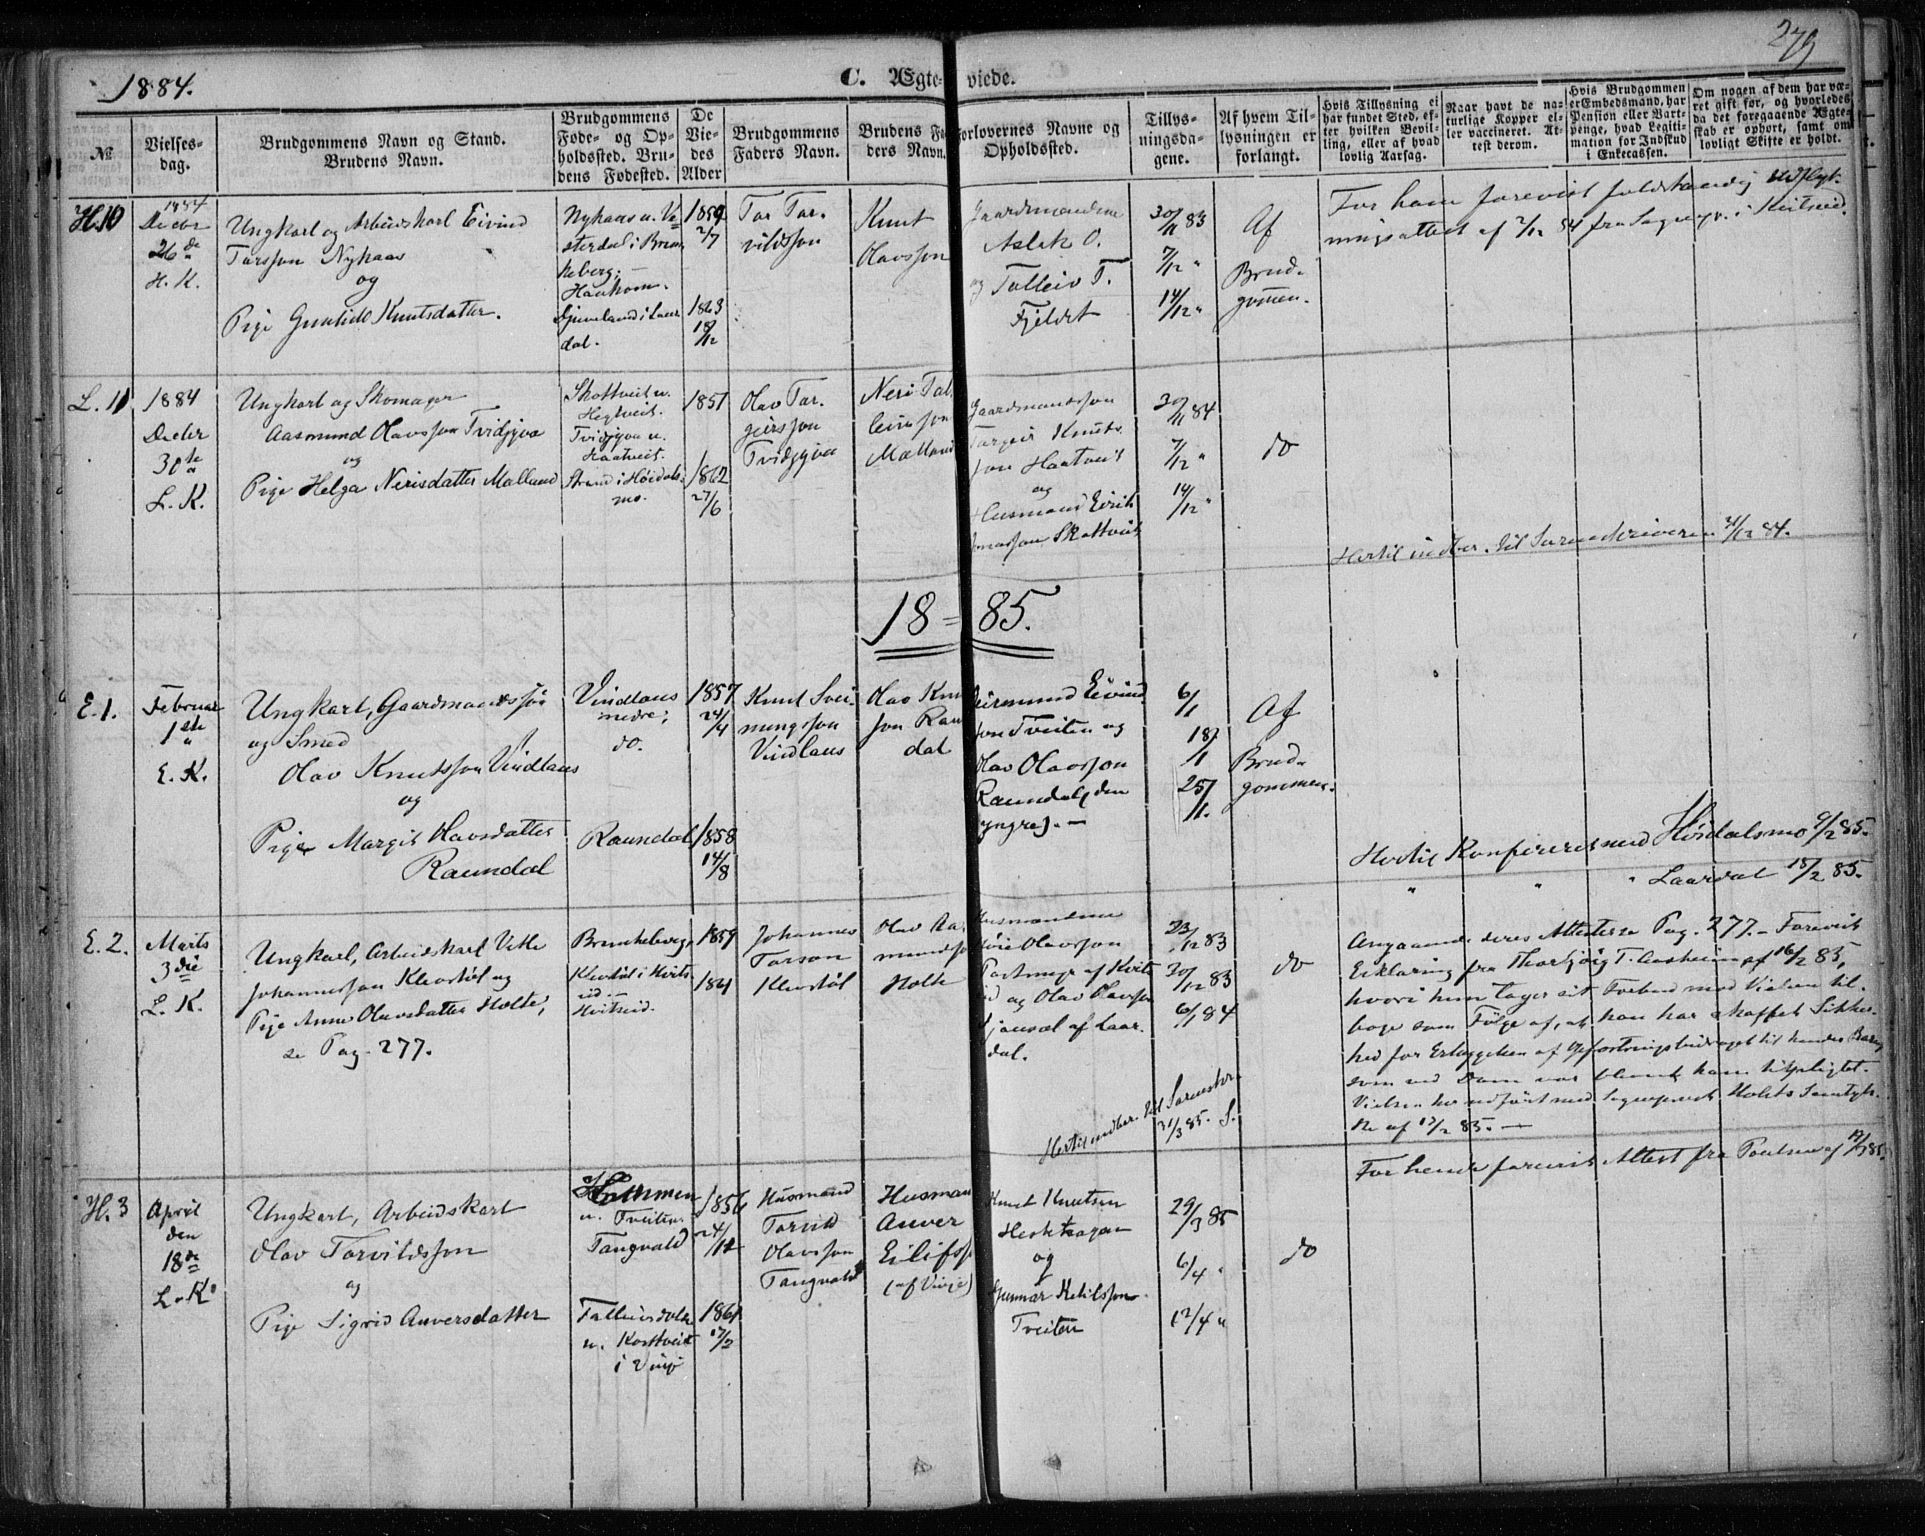 1884.
C. Ægteviede.
279
№
Vielsesdag.
Brudgommens Navn og Stand.
Brudens Navn.
Brudgommens
Føde- og Op-
holdssted. Bru-
dens Fødested.
De
Vie-
des
Alder
Brudgommens
Faders Navn.
Brudens Fa-
ders Navn.
Forlovernes Navne og
Opholdssted.
Tillys-
ningsda-
gene.
Af hvem Til-
lysningen er
forlangt.
Hvis Tillysning ei
har fundet Sted, ef-
ter hvilken Bevil-
ling, eller af hvad
lovlig Aarsag.
Naar havt de na-
turlige Kopper el-
ler vaccineret. At-
test derom.
Hvis Brudgommen
er Embedsmand, har
Pension eller Vart-
penge, hvad Legiti-
mation for Indskud
i Enkecassen.
Om nogen af dem har væ-
ret gift før, og hvorledes
da det foregaaende Ægte-
skab er ophørt, samt om
lovligt Skifte er holdt.
H. 10
1884
Decbr
26de
H. K.
Ungkarl og Arbeidskarl Eivind
Tarsson Nyhaas
og
Pige Gunhild Knutsdatter.
Nyhaas u. Ve
sterdal i Brun
keberg; —
Haukom.
Djuveland i Laur
dal.
1859
2/7
1863
18/12
Tor Tar-
vildsson
Knut
Olavsson
Gaardmændene
Aslak O.
og Talleiv T.
Fjeldet
30/11 83
7/12 "
14/12 "
Af
Brud-
gommen.
For ham forevist fuldstændig Udflyt-
ningsattest af 2/12 84 fra Sognepr. i Kviteseid.
L. 11
1884
Decbr
30te
L. K.
Ungkarl og Skomager
Aasmund Olavsson Tvidjyva
og
Pige Helga Nerisdatter Malland
Skottveit u.
Hegtveit.
Tvidjyva u.
Haatveit.
Strand i Høidals-
mo.
1851
1862
27/6
Olav Tar-
geirsson
Tvidjyva
Neri Tal
leivsson
Malland
Gaardmandsson
Targeir Knuts
son Haatveit
og
Husmand Eirik
Jonasson Skottveit
30/11 84
7/12 "
14/12 "
do
Hertil indber. til Sorenskriveren 31/12 84.
18 = 85.
E. 1.
Februar
1ste
E. K.
Ungkarl, Gaardmandssøn
og Smed
Olav Knutsson Vindlaus
og
Pige Margit Olavsdatter
Raundal
Vindlaus
nedre;
do.
Raundal
1857
24/4
1858
14/8
Knut Svei-
nungsson
Vindlaus
Olav Knu
son Raun
dal
Geirmund Eivind
son Tveiten og
Olav Olavsson
Raundal (den
yngre). —
6/1
18/1
25/1.
Af
Brud-
gommen.
Hertil Konfereret med Høidalsmo 9/2 85.
" " " Laardal 15/2 85.
E. 2.
Marts
3die
L. K.
Ungkarl, Arbeidskarl Vetle
Johannesson Klevstøl og
Pige Anne Olavsdatter Holte,
se Pag. 277.
Brunkeberg,
Klevstøl i Kvits
eid. —
Kvitseid.
1859
1861
Johannes
Torson
Klevstøl
Olav Aa-
mundss
Holte
Husmændene
Høie Olavsson
Postmyr af Kvits
eid og Olav Olavsson
af Laar-
dal.
23/12 83
30/12 83
6/1 84
do
Angaaende deres Attester se Pag. 277. — Forevist
Erklæring fra Thorbjørg T. Aasheim af 16/2 85,
hvori hun tager sit Forbud mod Vielsen til-
bage som Følge af, at han har skaffet Sikker-
hed for Erlæggelsen af Opfostringsbidraget til hendes Barn,
som ved Dom var blevet ham tilpligtet.
Vielsen her udført med Sogneprest Holsts Samtyk-
ke af 17/2 85. —
Hertil indber. til Sorenskr.
31/3 85. S.
For hende forevist Attest fra Poulsen af 17/3 85.
H. 3
April
den
18de
L. K.
Ungkarl, Arbeidskarl
Olav Torvildsson
og
Pige Sigrid Anversdatter
u. Tveiten.
Tangvald
Talleivsdalen
u. Kostveit
i Vinje
1856
24/12
1861
17/2
Husmand
Torvild
Olavsson
Tangvald
Husman
Anver
Eilifss
(af Vinje)
Knut Knutsen
Heskkagen
og
Gunnar Ketilsson
Tveiten
29/3 85
6/4 "
12/4 "
do